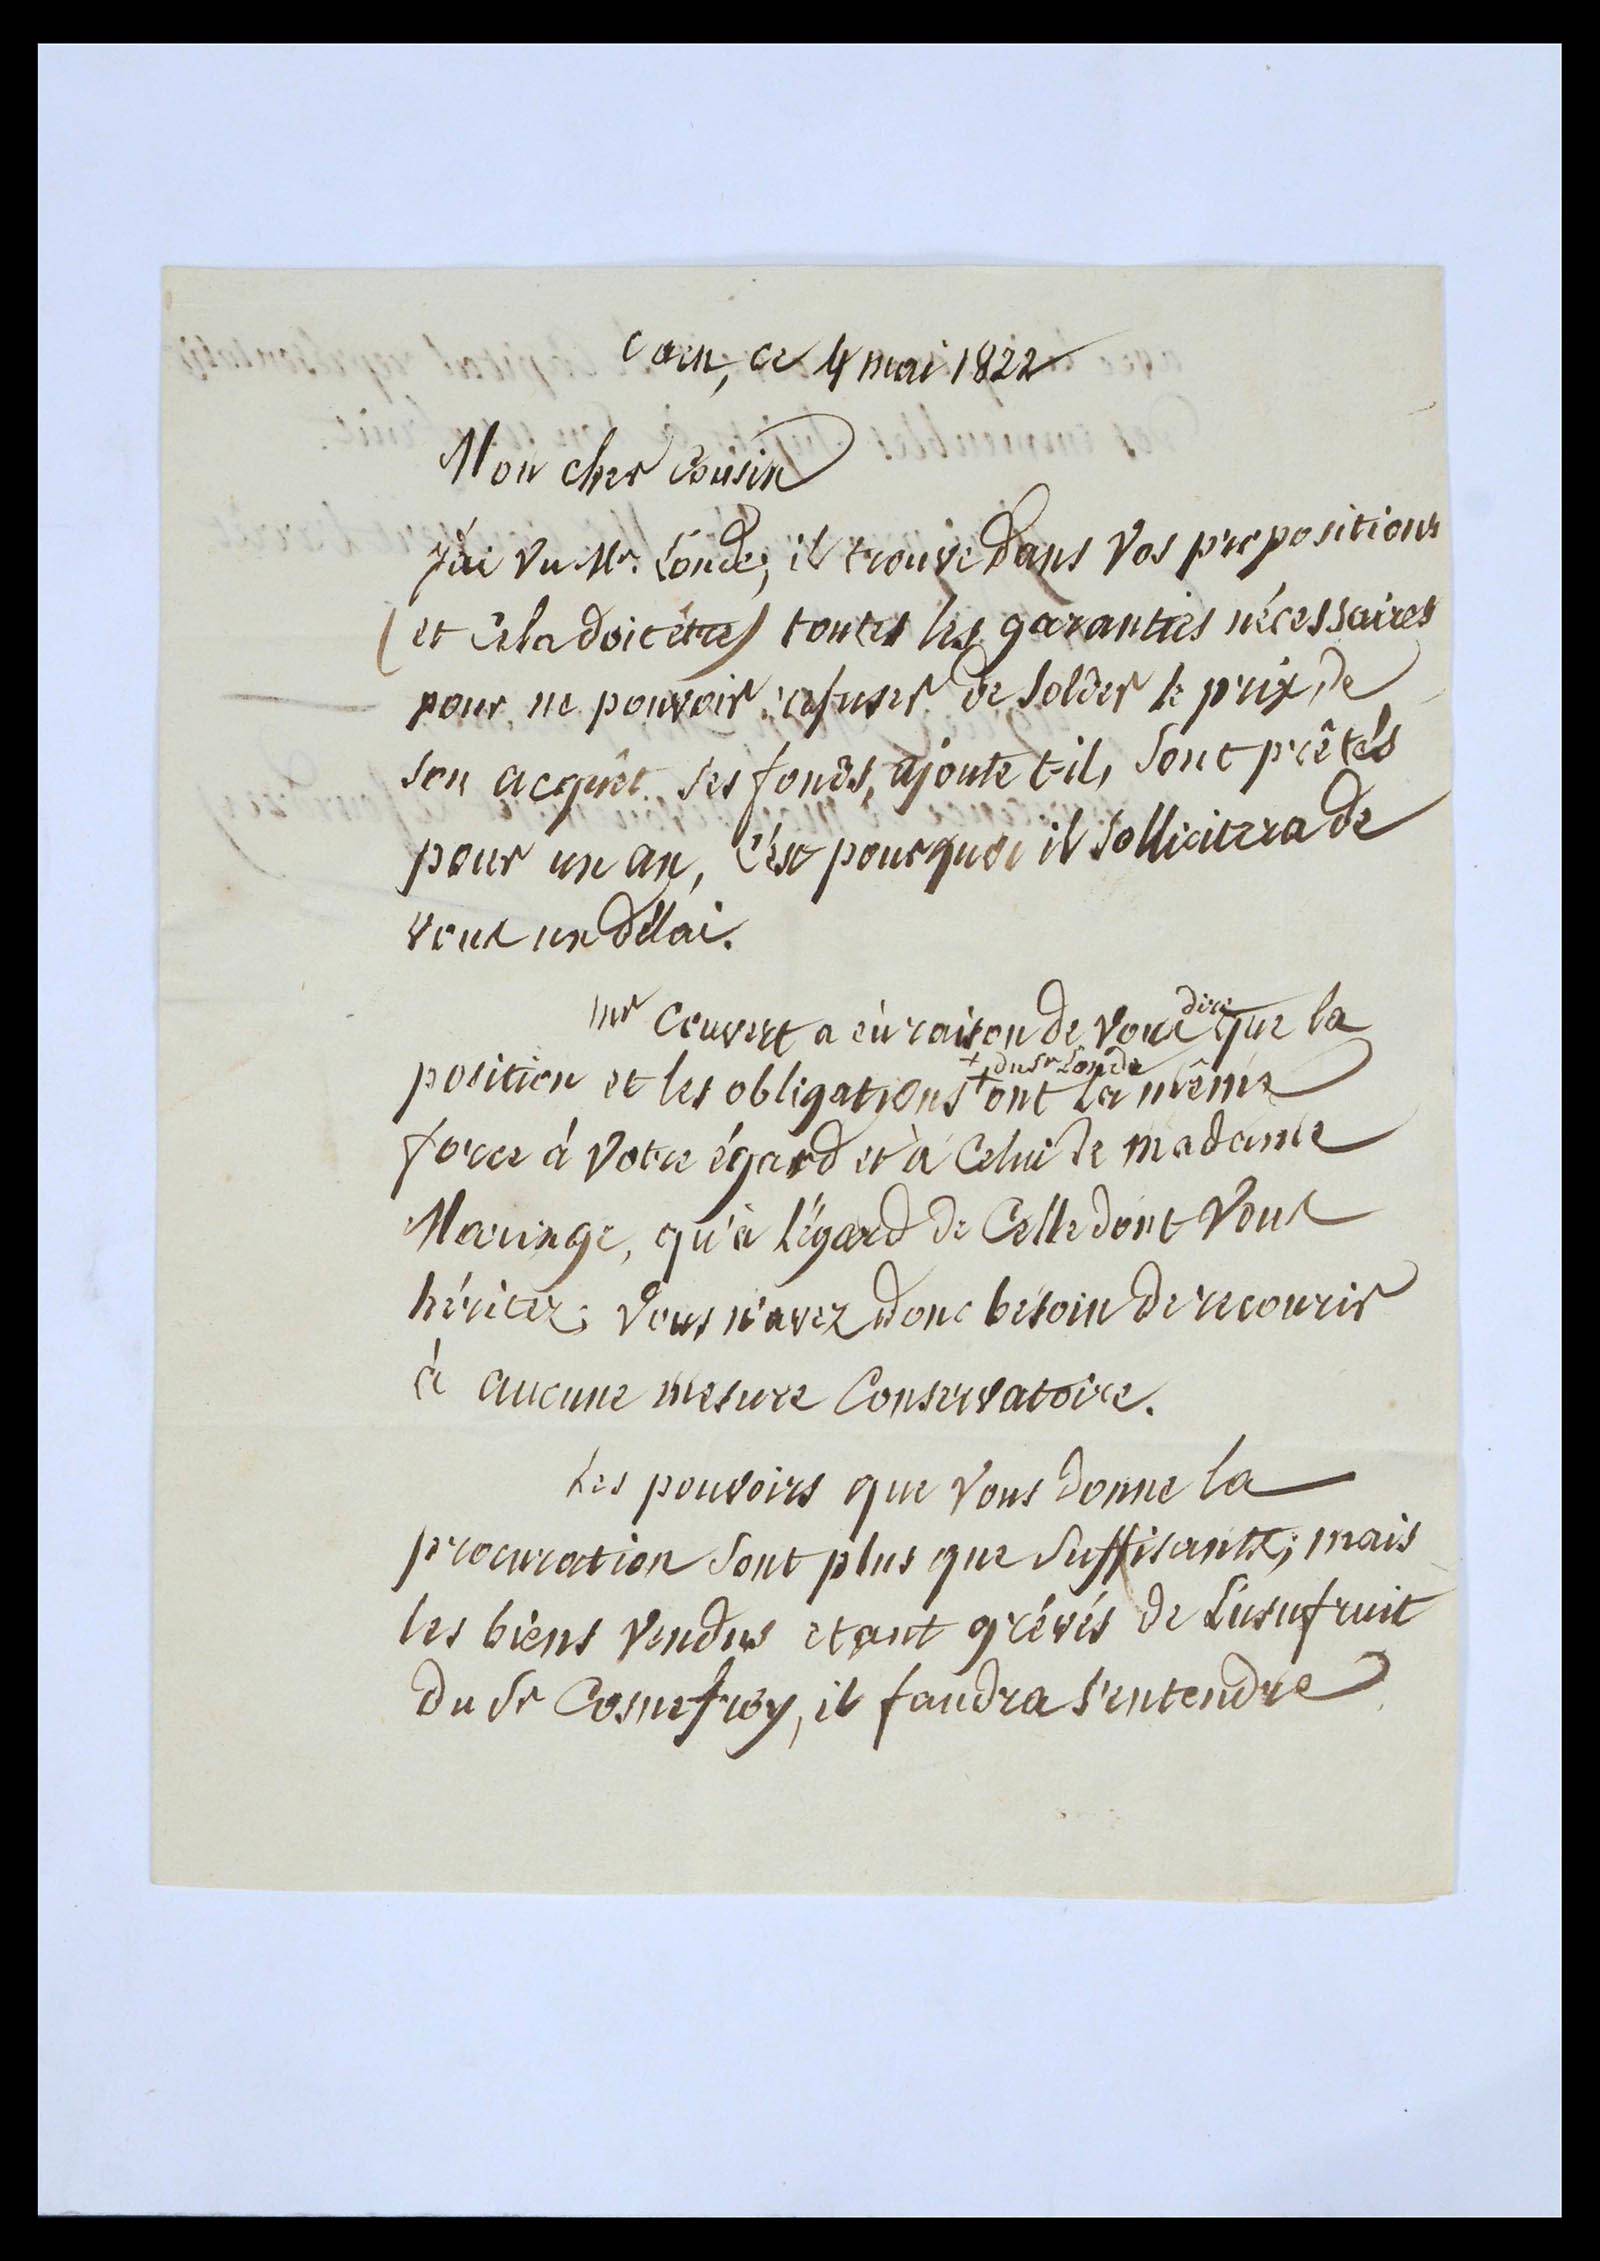 Caen, ce 4 mai 1822
Mon cher Cousin
J'ai vu Mr. Londe, il trouve dans vos propositions
(et cela doit être) toutes les garanties nécessaires
pour ne pouvoir refuser de solder le prix de
son acquêt. ses fonds, ajoute t-il, sont prêtés
pour un an, c'est pourquoi il sollicitera de
vous un délai.
Mr Couvert a eû raison de vous dire que la
position et les obligations + du Sr Londe ont la même
force à votre égard et à celui de madame
, qu'à l'égard de celle dont vous
héritez; vous n'avez donc besoin de recourir
à aucune mesure conservatoire.
Les pouvoirs que vous donne la
procuration sont plus que suffisants; mais
les biens vendus etant grévés de l'usufruit
du Sr Cosnefroy, il faudra s'entendre